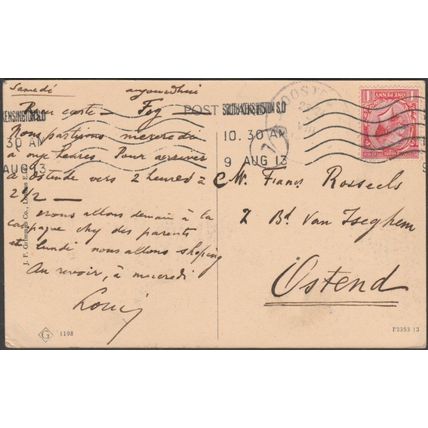 Samedi aujourdhui
Rien carte — Fog —
Nous partirons mercredi
à onze heures Pour arriver
à Ostende vers 2 heures
2 1/2 —
nous allons demain à la
campagne chez des parents
et lundi nous allons shoping
Au revoir, à mercredi
Louis
POST
KENSINGTON S.O
30 AM
AUG 13
SOUTH KENSINGTON S.O
10.30 AM
9 AUG 13
OOST
ONE PENNY
1
M. Franz Rosseels
7 Bd. Van Iseghem
Ostend
G
1198
P3353 13